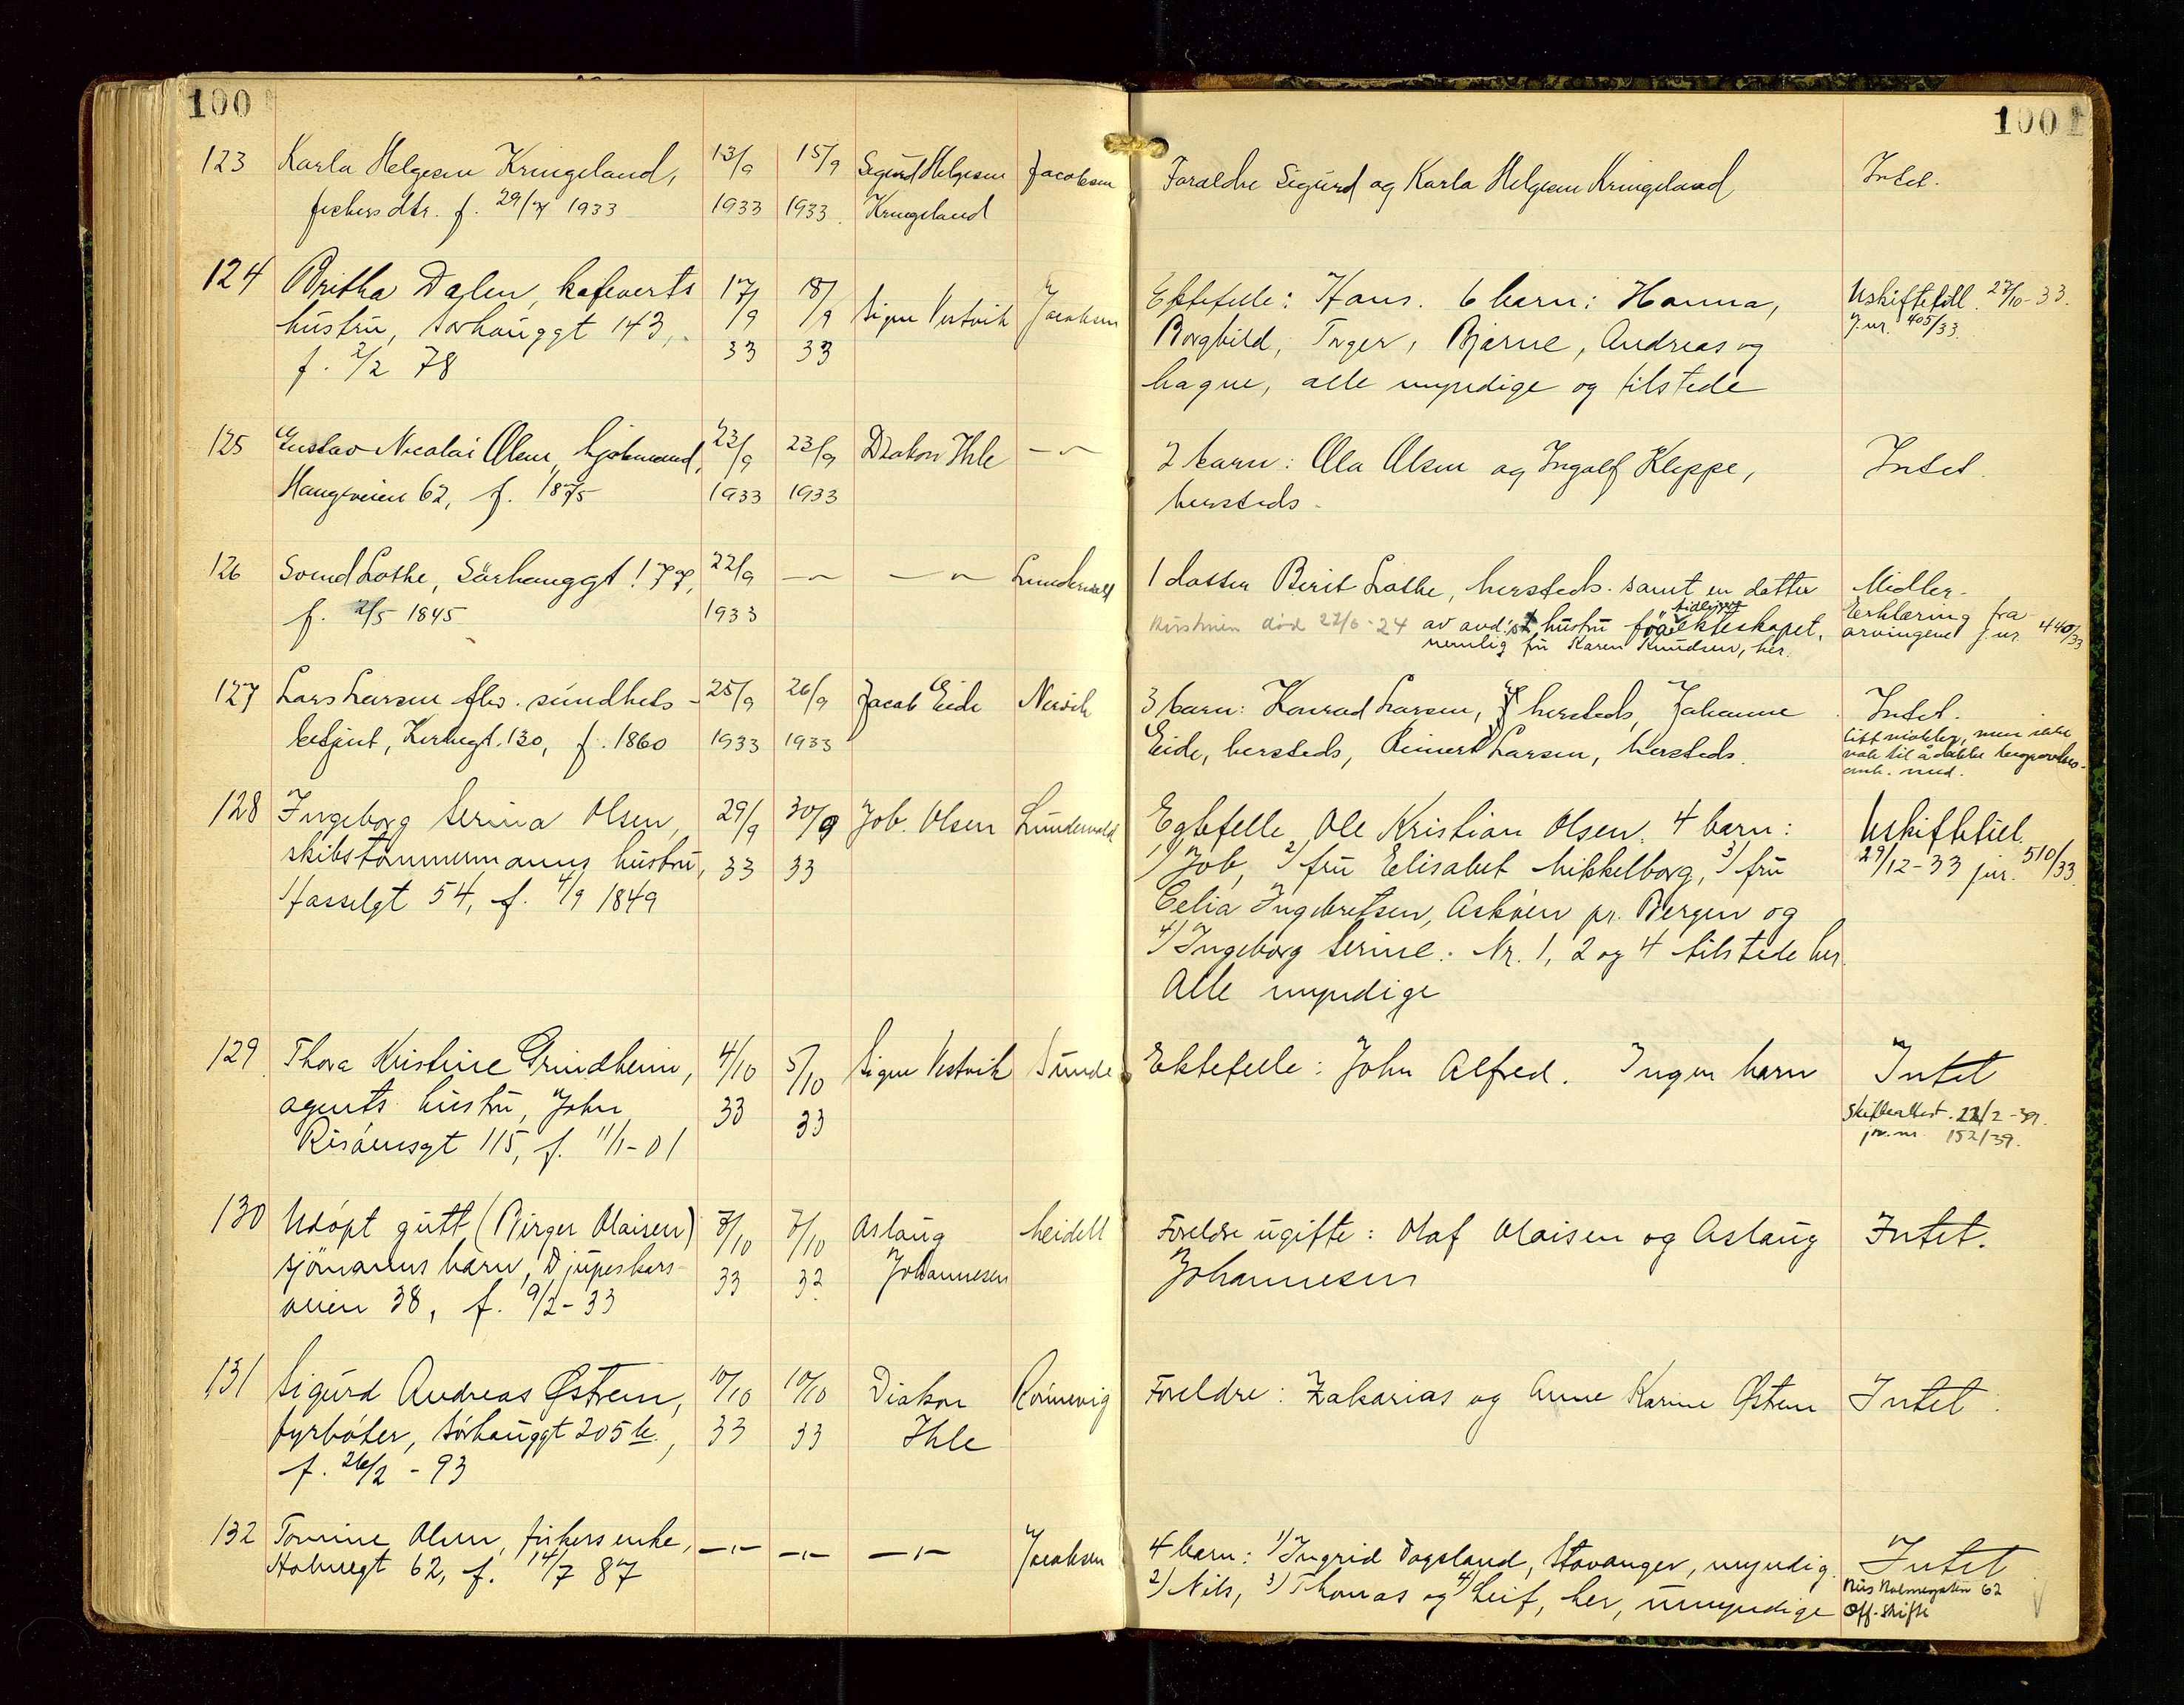 100
100
123 Karla Helgesen Kringeland, 13/9 15/9 Sigurd Helgesen Jacobsen Foraldre Sigurd og Karla Helgesen Kringeland Intet.
fiskers dtr. f. 29/7 1933 1933 1933. Kringeland
124 Britha Dalen, kafeverts 17/9 18/9 Signe Vestvik Jacobsen Ektefelle: Hans. 6 barn: Hanna, Uskiftetill. 27/10-33.
hustru, Sørhauggt 143, 33 33 Borghild, Inger, Bjarne, Andreas og J.nr. 405/33.
f. 2/2 78 Magne, alle myndige og tilstede
125 Gustav Nicolai Olsen, 23/9 23/9 Diakon Ihle -〃- 2 barn: Ola Olsen og Ingolf Kleppe, Intet.
Haugeveien 62, f. 1875 1933 1933 hersteds.
126 Svend Lothe, Sørhauggt 177, 22/9 -〃- -〃- Lundervold 1 datter Berit Lothe, hersteds. samt en datter Midler.
f. 2/5 1845 1933 Hustruen død 22/6-24 av avd's hustru fra tidligere ekteskapet, Erklæring fra
nemlig fru Karen Knudsen, her. arvingene j.nr. 440/33
127 Lars Larsen fhv. sundhets- 25/9 26/9 Jacob Eide Nervik 3 barn: Konrad Larsen, hersteds, Johanne Intet.
betjent, Kirkegt. 130, f. 1860 1933 1933 Eide, hersteds, Reinert Larsen, hersteds. litt midler, men ikke
nok til å dekke
med.
128 Ingeborg Serina Olsen, 29/9 30/9 Job. Olsen Lundervold Egtefelle Ole Kristian Olsen. 4 barn: Uskiftetill.
skibstømmermanns hustru, 33 33 1) Job, 2) fru Elisabet Mikkelborg, 3) fru 29/12-33 jnr. 510/33
Hasselgt 54, f. 4/9 1849 Celia Ingebretsen, Askøen pr. Bergen og
4) Ingeborg Serine. Nr. 1, 2 og 4 tilstede her.
Alle myndige
129 Thora Kristine Grindheim, 4/10 5/10 Signe Vestvik Sunde Ektefelle: John Alfred. Ingen barn Intet
agents hustru, John 33 33 Skifteattest. 22/2-39.
Risøensgt 115, f. 11/1-01 jnr. nr. 152/39.
130 Udøpt gutt (Birger Olaisen) 7/10 7/10 Aslaug Meidell Foreldre ugifte: Olaf Olaisen og Aslaug Intet.
sjømanns barn, Djupeskars- 33 33 Johannesen Johannesen
veien 38, f. 9/2-33
131 Sigurd Andreas Østrem, 10/10 10/10 Diakon Rönnevig Foreldre: Zakarias og Anne Karine Østrem Intet.
fyrbøter, Sørhauggt 205 b, 33 33 Ihle
f. 26/2-93
132 Tomine Olsen, fiskers enke, -〃- -〃- -〃- Jacobsen 4 barn: 1) Ingrid Dagsland, Stavanger, myndig. Intet
Holmegt 62, f. 14/7 87 2) Nils, 3) Thomas og 4) Leif, her, umyndige Hus Holmegaten 62
Off. skifte